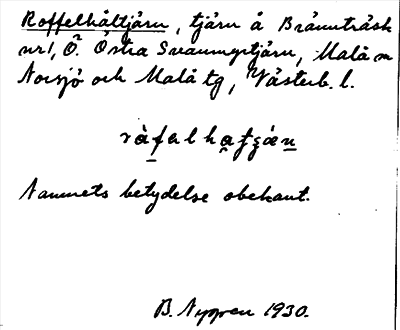 Roffelhåltjärn, tjärn å Brännträsk
nr 1, Ö. Östra Svanmyrtjärn, Malå sn
Norsjö och Malå tg, Västerb. l.
Namnets betydelse obekant.
B. Nygren 1930.